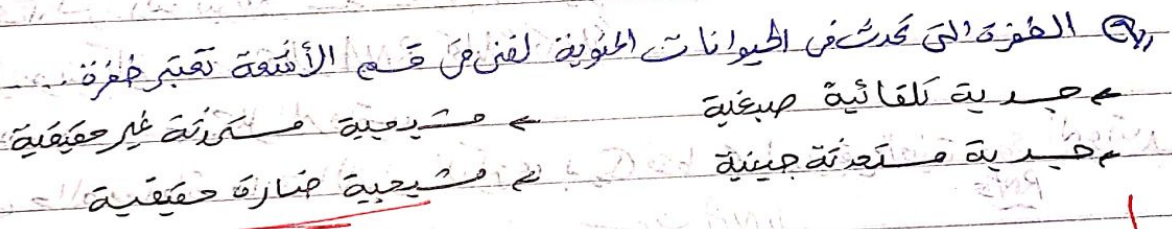 الطفرة التى تحدث فى الحيوانات المنوية لفنى فى قسم الأشعة تعتبر طفرة ....
← جسدية تلقائية صبغية ← مشيجية مستحدثة غير حقيقية
← جسدية مستحدثة جينية ← مشيجية ضارة حقيقية